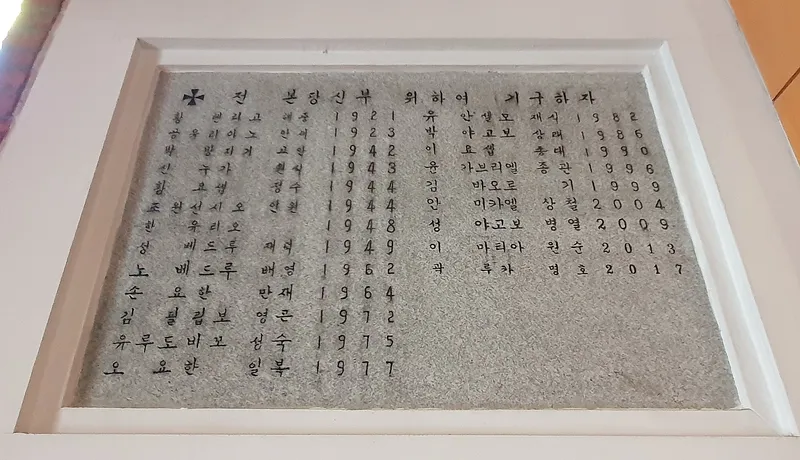 ✠ 전 본당신부 위하여 기구하자
1921
1923
박 방지거 1942
신 루가 원식 1943
요셉 정수 1944
조 원선시오 인원 1944
한 유리오 1948
성 베드루 재덕 1949
노 베드루 배영 1962
손 요한 만재 1964
김 필립보 영근 1972
유 루도비꼬 성숙 1975
오 요한 일복 1977
유 안셀모 재식 1982
박 야고보 상래 1986
이 요셉 1990
윤 가브리엘 종관 1996
김 바오로 기 1999
안 미카엘 상철 2004
성 야고보 병열 2009
이 마티아 원순 2013
곽 루카 명호 2017